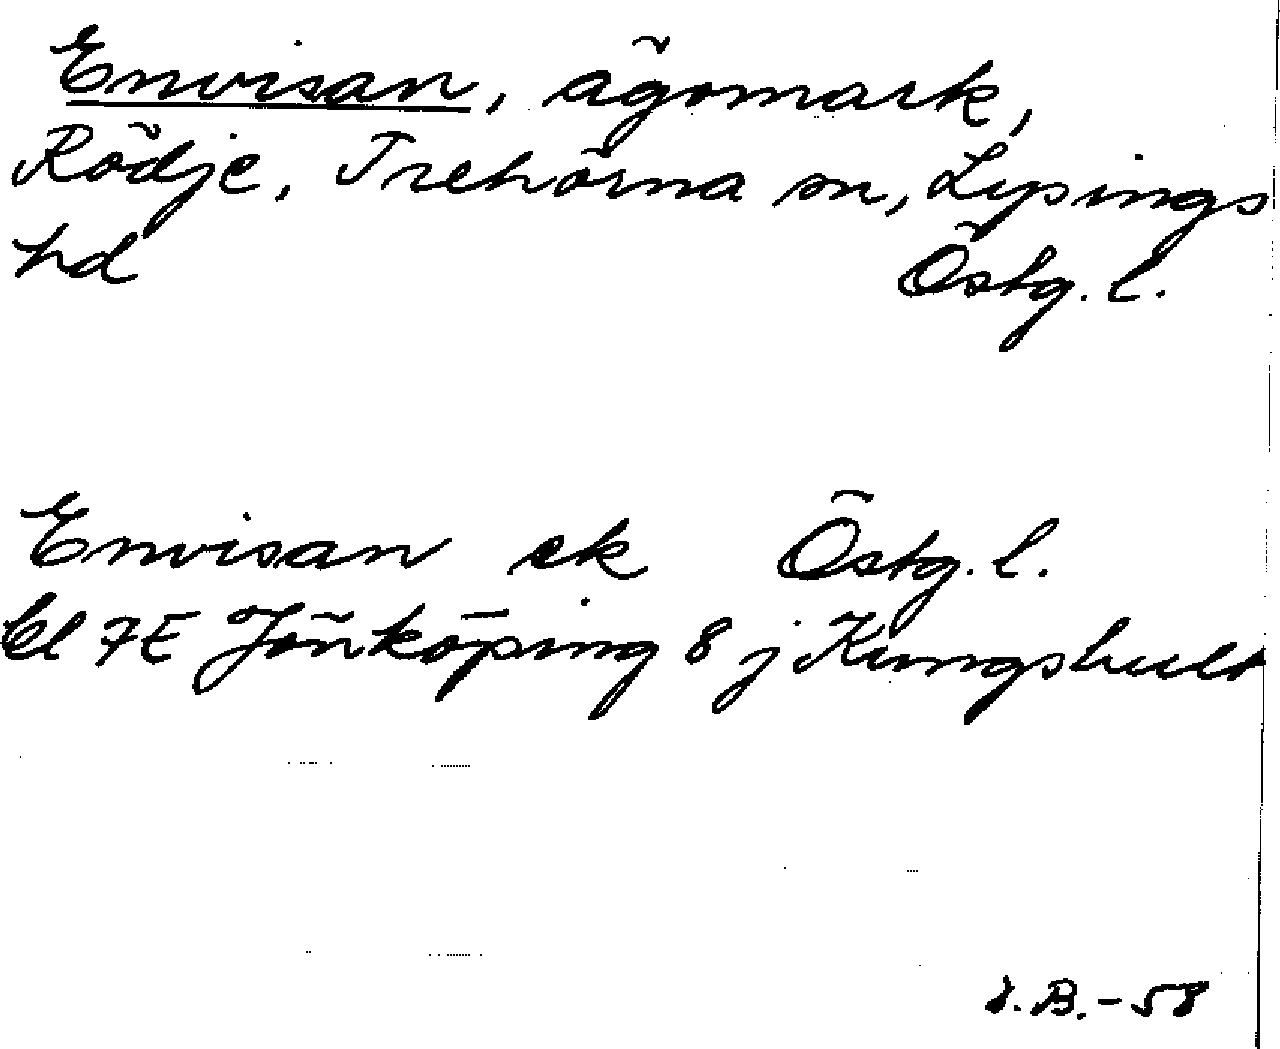 Envisan, ägomark,
Rödje, Trehörna sn, Lysings
hd Östg. l.
Envisan ek Östg. l.
bl 7E Jönköping 8 j Kungshult
B.-58